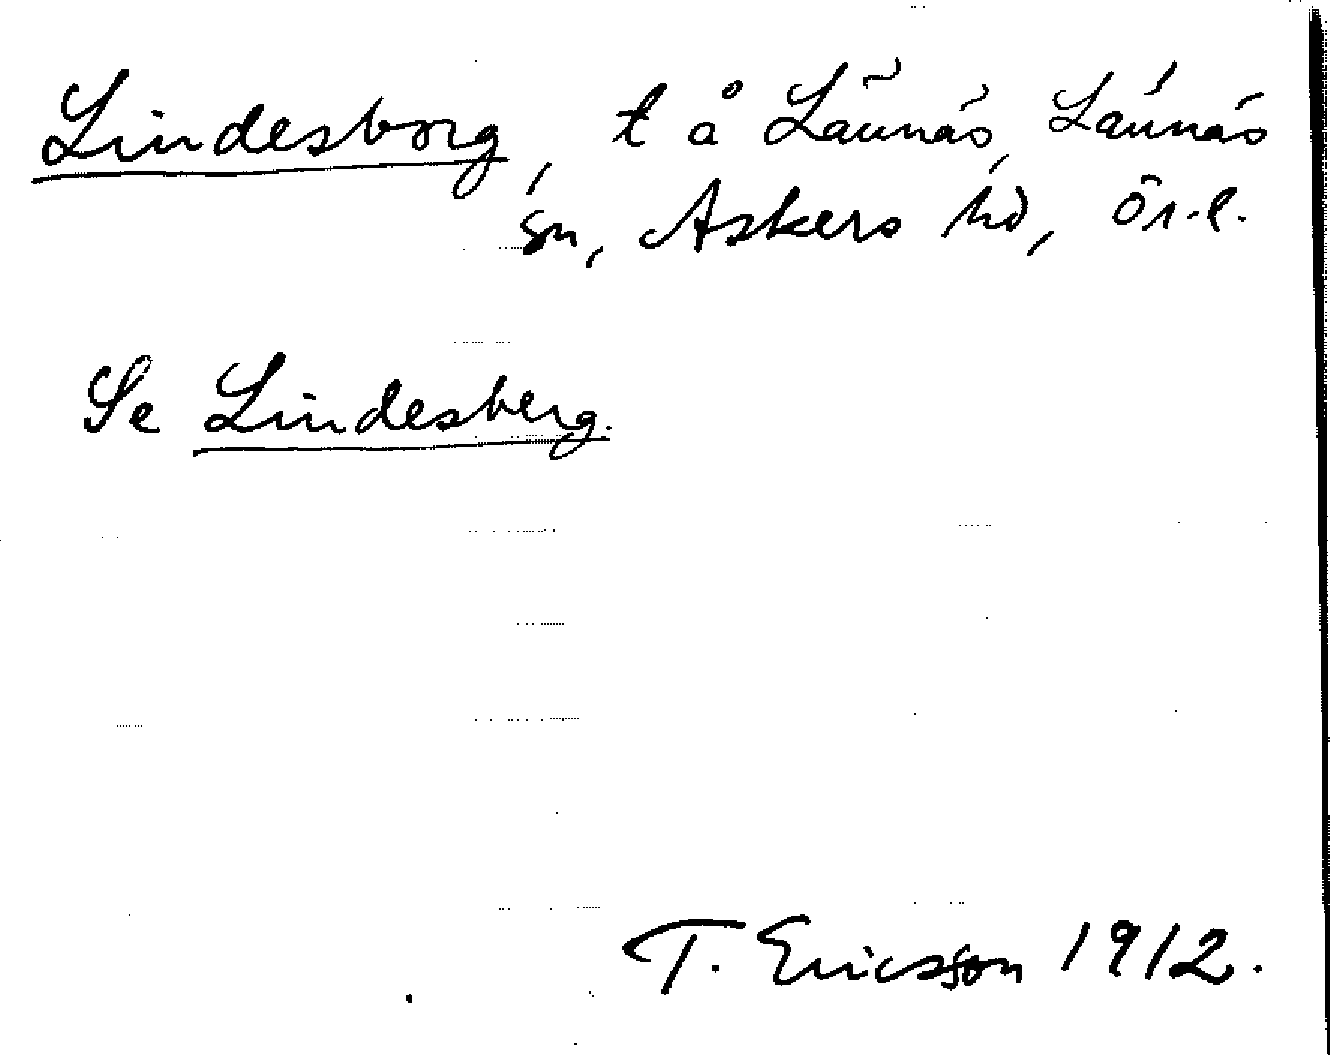 Lindesborg, t å Lännäs, Lännäs
sn, Askers hd, Ör.l.
Se Lindesberg.
T. Ericsson 1912.